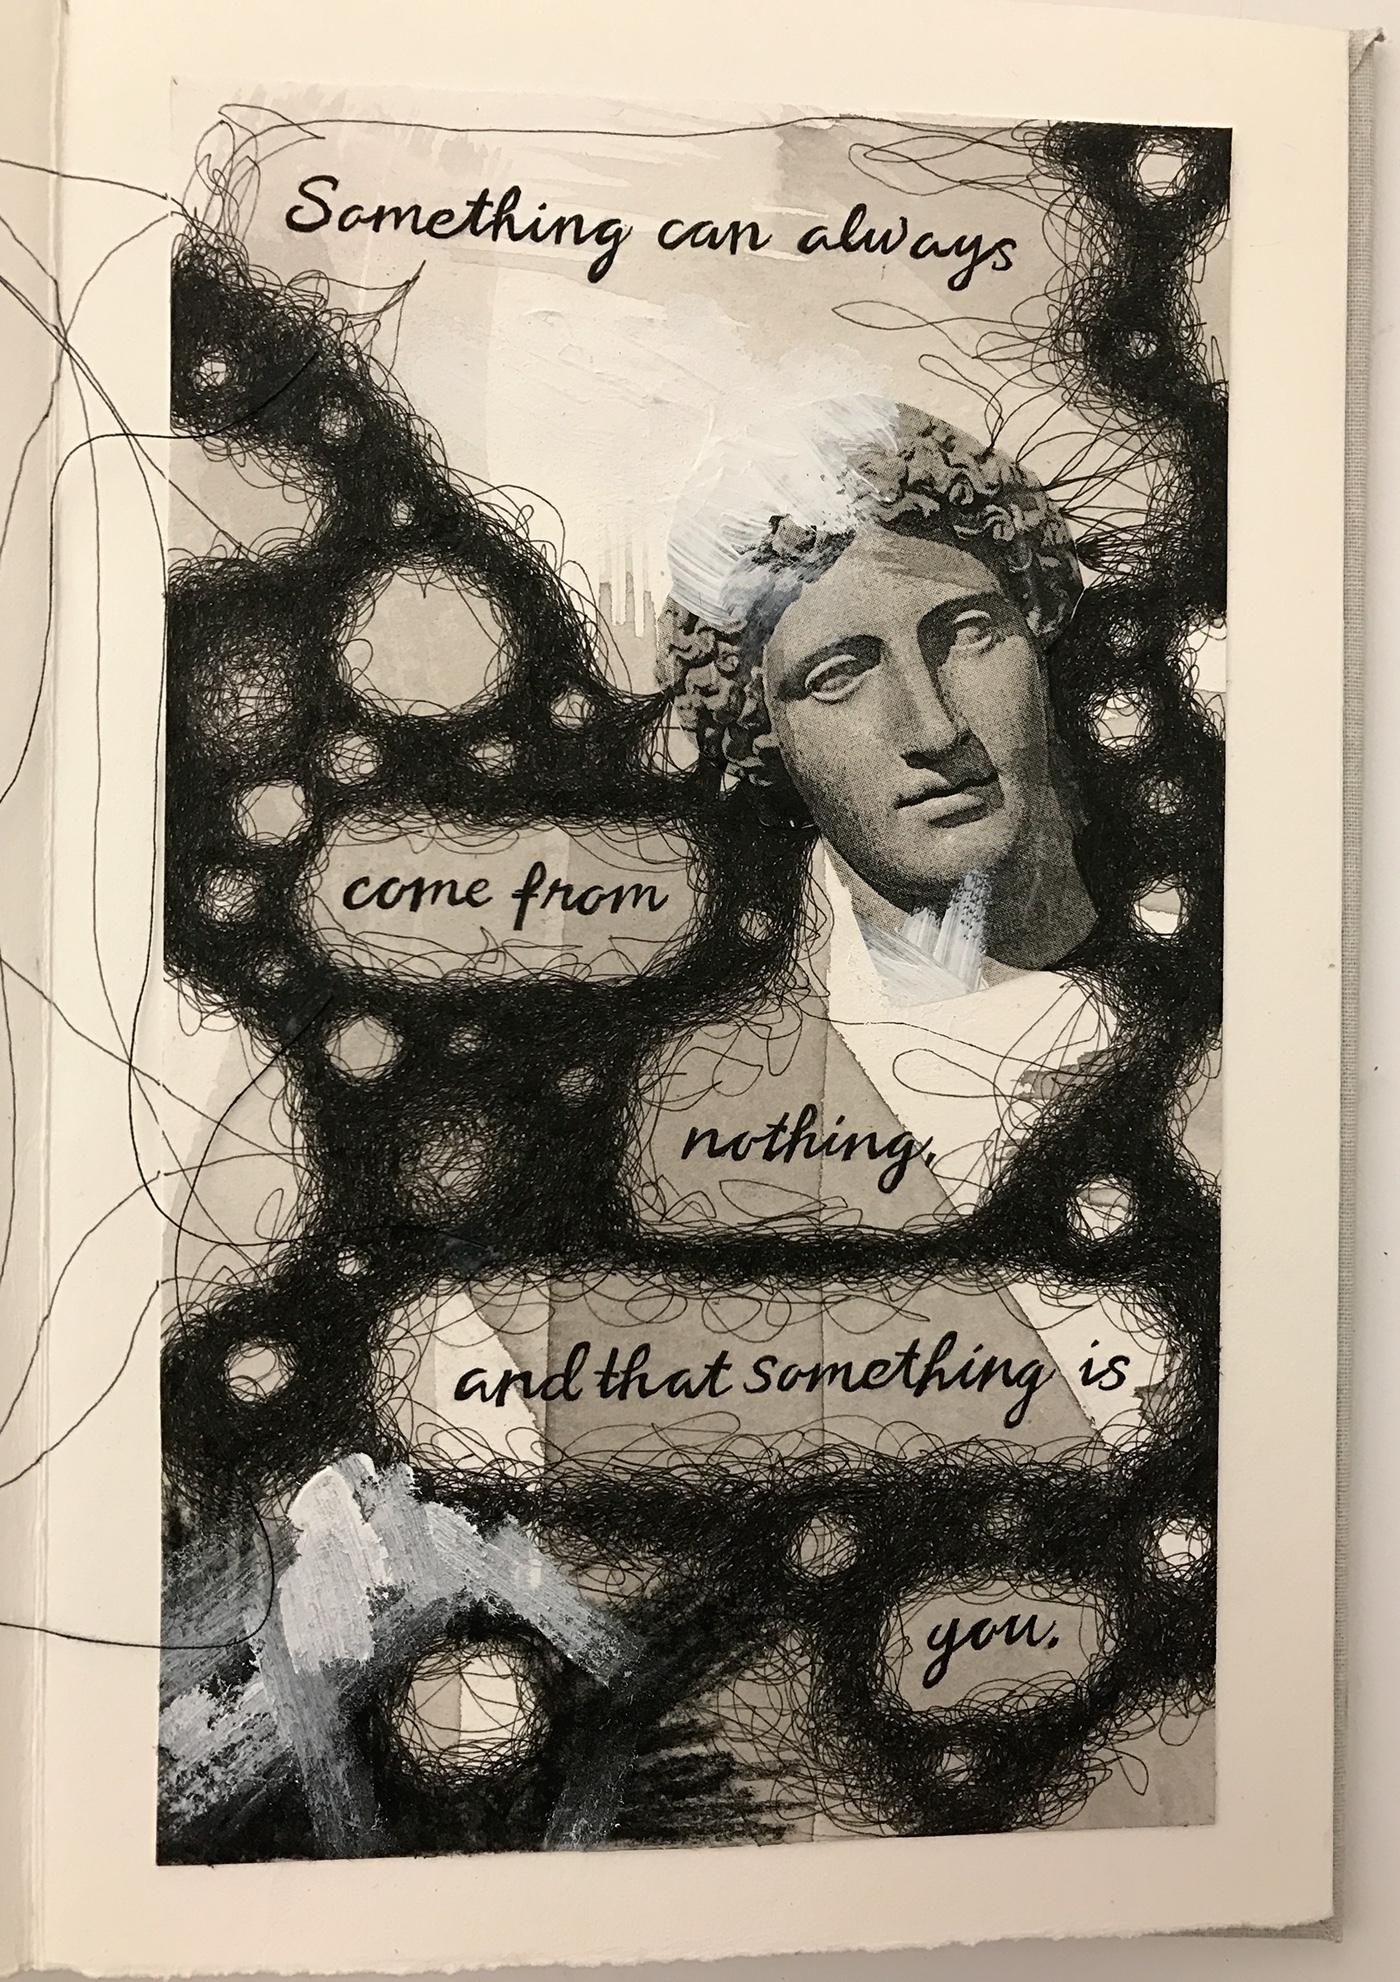 Something can always
come from
nothing,
and that something is
you.